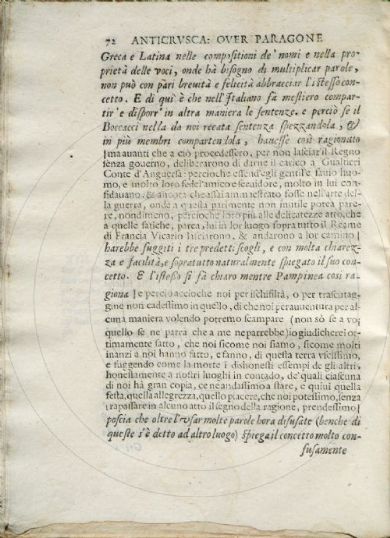 72 ANTICRVSCA: OVER PARAGONE
Greca e Latina nelle compositioni de' nomi e nella pro-
prietà delle voci, onde hà bisogno di multiplicar parole,
non può con pari brevità e felicità abbracciar l'istesso con-
cetto. E di qui è che nell'Italiano fà mestiero compar-
tir' e dispor' in altra maniera le sentenze. e perciò se il
Boccacci nella da noi recata sentenza spezzandola, &
in più membri compartendola, havesse così ragionato
[ma auanti che a ciò procedessero, per non lasciar il Regno
senza gouerno, deliberarono di darne il carico a Gualtieri
Conte d'Anguersa: percioche essendo egli gentil e sauio huo-
mo, e molto loro fedel'amico e seruidore, molto in lui con-
fidauano. & ancora che assai ammaestrato fosse nell'arte del-
la guerra, onde a questa parimente non inutile potea pare-
re, nondimeno, percioche loro più alle delicatezze atto, che
a quelle fatiche, parea, lui in lor luogo sopra tutto il Regno
di Francia Vicario lasciarono, & andarono a lor camino]
harebbe fuggiti i tre predetti scogli, e con molta chiarez-
za e facilità, e sopratutto naturalmente spiegato il suo con-
cetto. E l'istesso si fà chiaro mentre Pampinea così ra-
giona [e perciò accioche noi per ischifiltà, o per trascutag-
gine non cadessimo in quello, di che noi per auuentura per al-
cuna maniera volendo potremo scampare (non sò se a voi
quello se ne parrà che a me ne parrebbe) io giudicherei ot-
timamente fatto, che noi sicome noi siamo, sicome molti
inanzi a noi hanno fatto, e fanno, di questa terra vscissimo,
e fuggendo come la morte i dishonesti essempi de gli altri,
honestamente a nostri luoghi in contado, de' quali a ciascuna
di noi hà gran copia, ce ne andassimo a stare, e quiui quella
festa, quella allegrezza, quello piacere, che noi potessimo, senza
trapassare in alcuno atto il segno della ragione, prendessimo]
poscia che oltre l'vsar molte parole hora disusate (benche di
queste s'è detto ad altro luogo) spiega il concetto molto con-
fusamente